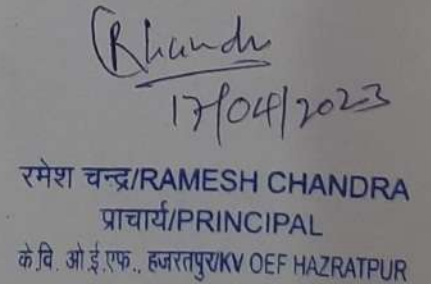 RChandr
17/04/2023
रमेश चन्द्र/RAMESH CHANDRA
प्राचार्य/PRINCIPAL
के.वि. ओ.ई.एफ., हजरतपुर/KV OEF HAZRATPUR